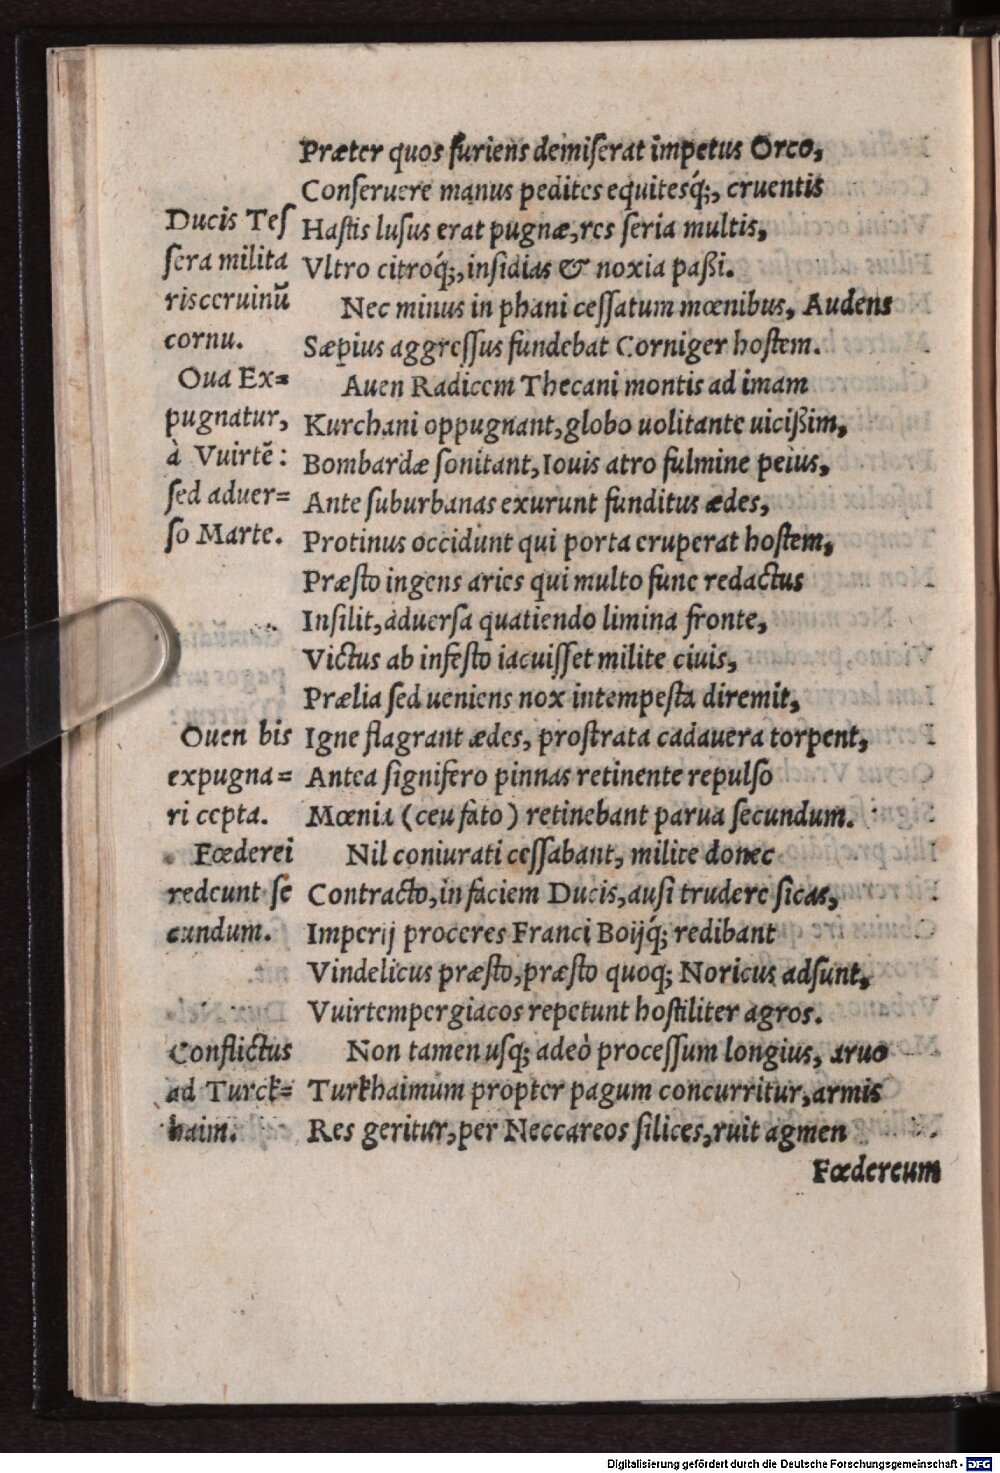 Præter quos furiens demiserat impetus Orco,
Conseruere manus pedites equitesq́;, cruentis
Ducis Tes
Hastis lusus erat pugnæ, res seria multis,
sera milita
Vltro citroq́;, insidias & noxia paßi.
risceruinũ
Nec minus in phani cessatum mœnibus, Audens
cornu.
Sæpius aggressus fundebat Corniger hostem.
Oua Ex=
Auen Radicem Thecani montis ad imam
pugnatur,
Kurchani oppugnant, globo uolitante uicißim,
à Vuirtẽ:
Bombardæ sonitant, Iouis atro fulmine peius,
sed aduer=
Ante suburbanas exurunt funditus ædes,
so Marte.
Protinus occidunt qui porta eruperat hostem,
Præsto ingens aries qui multo fune redactus
Insilit, aduersa quatiendo limina fronte,
Victus ab infesto iacuisset milite ciuis,
Prælia sed ueniens nox intempesta diremit,
Ouen bis
Igne flagrant ædes, prostrata cadauera torpent,
expugna=
Antea signifero pinnas retinente repulso
ri cepta.
Mœnia (ceu fato) retinebant parua secundum.
Fœderei
Nil coniurati cessabant, milite donec
redeunt se
Contracto, in faciem Ducis, ausi trudere sicas,
cundum.
Imperij proceres Franci Boijq́; redibant
Vindelicus præsto, præsto quoq; Noricus adsunt,
Vuirtempergiacos repetunt hostiliter agros.
Conflictus
Non tamen usq; adeò processum longius, aruo
ad Turck=
Turkhaimum propter pagum concurritur, armis
haim.
Res geritur, per Neccareos silices, ruit agmen
Fœdereum
Digitalisierung gefördert durch die Deutsche Forschungsgemeinschaft - DFG